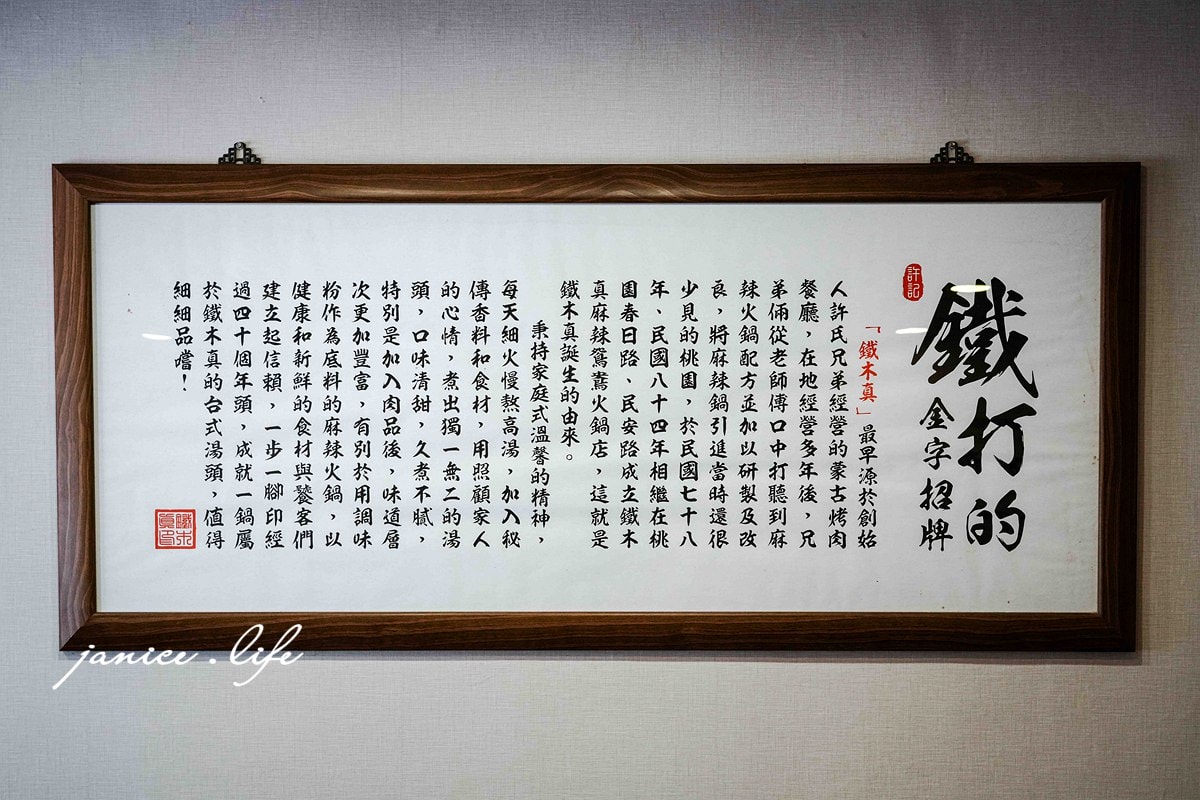 鐵打的
金字招牌
許記
「鐵木真」最早源於創始
人許氏兄弟經營的蒙古烤肉
餐廳，在地經營多年後，兄
弟倆從老師傅口中打聽到麻
辣火鍋配方並加以研製及改
良，將麻辣鍋引進當時還很
少見的桃園，於民國七十八
年、民國八十四年相繼在桃
園春日路、民安路成立鐵木
真麻辣鴛鴦火鍋店，這就是
鐵木真誕生的由來。
秉持家庭式溫馨的精神，
每天細火慢熬高湯，加入秘
傳香料和食材，用照顧家人
的心情，煮出獨一無二的湯
頭，口味清甜，久煮不膩，
特別是加入肉品後，味道層
次更加豐富，有別於用調味
粉作為底料的麻辣火鍋，以
健康和新鮮的食材與饕客們
建立起信賴，一步一腳印經
過四十個年頭，成就一鍋屬
於鐵木真的台式湯頭，值得
細細品嚐！
janice.life